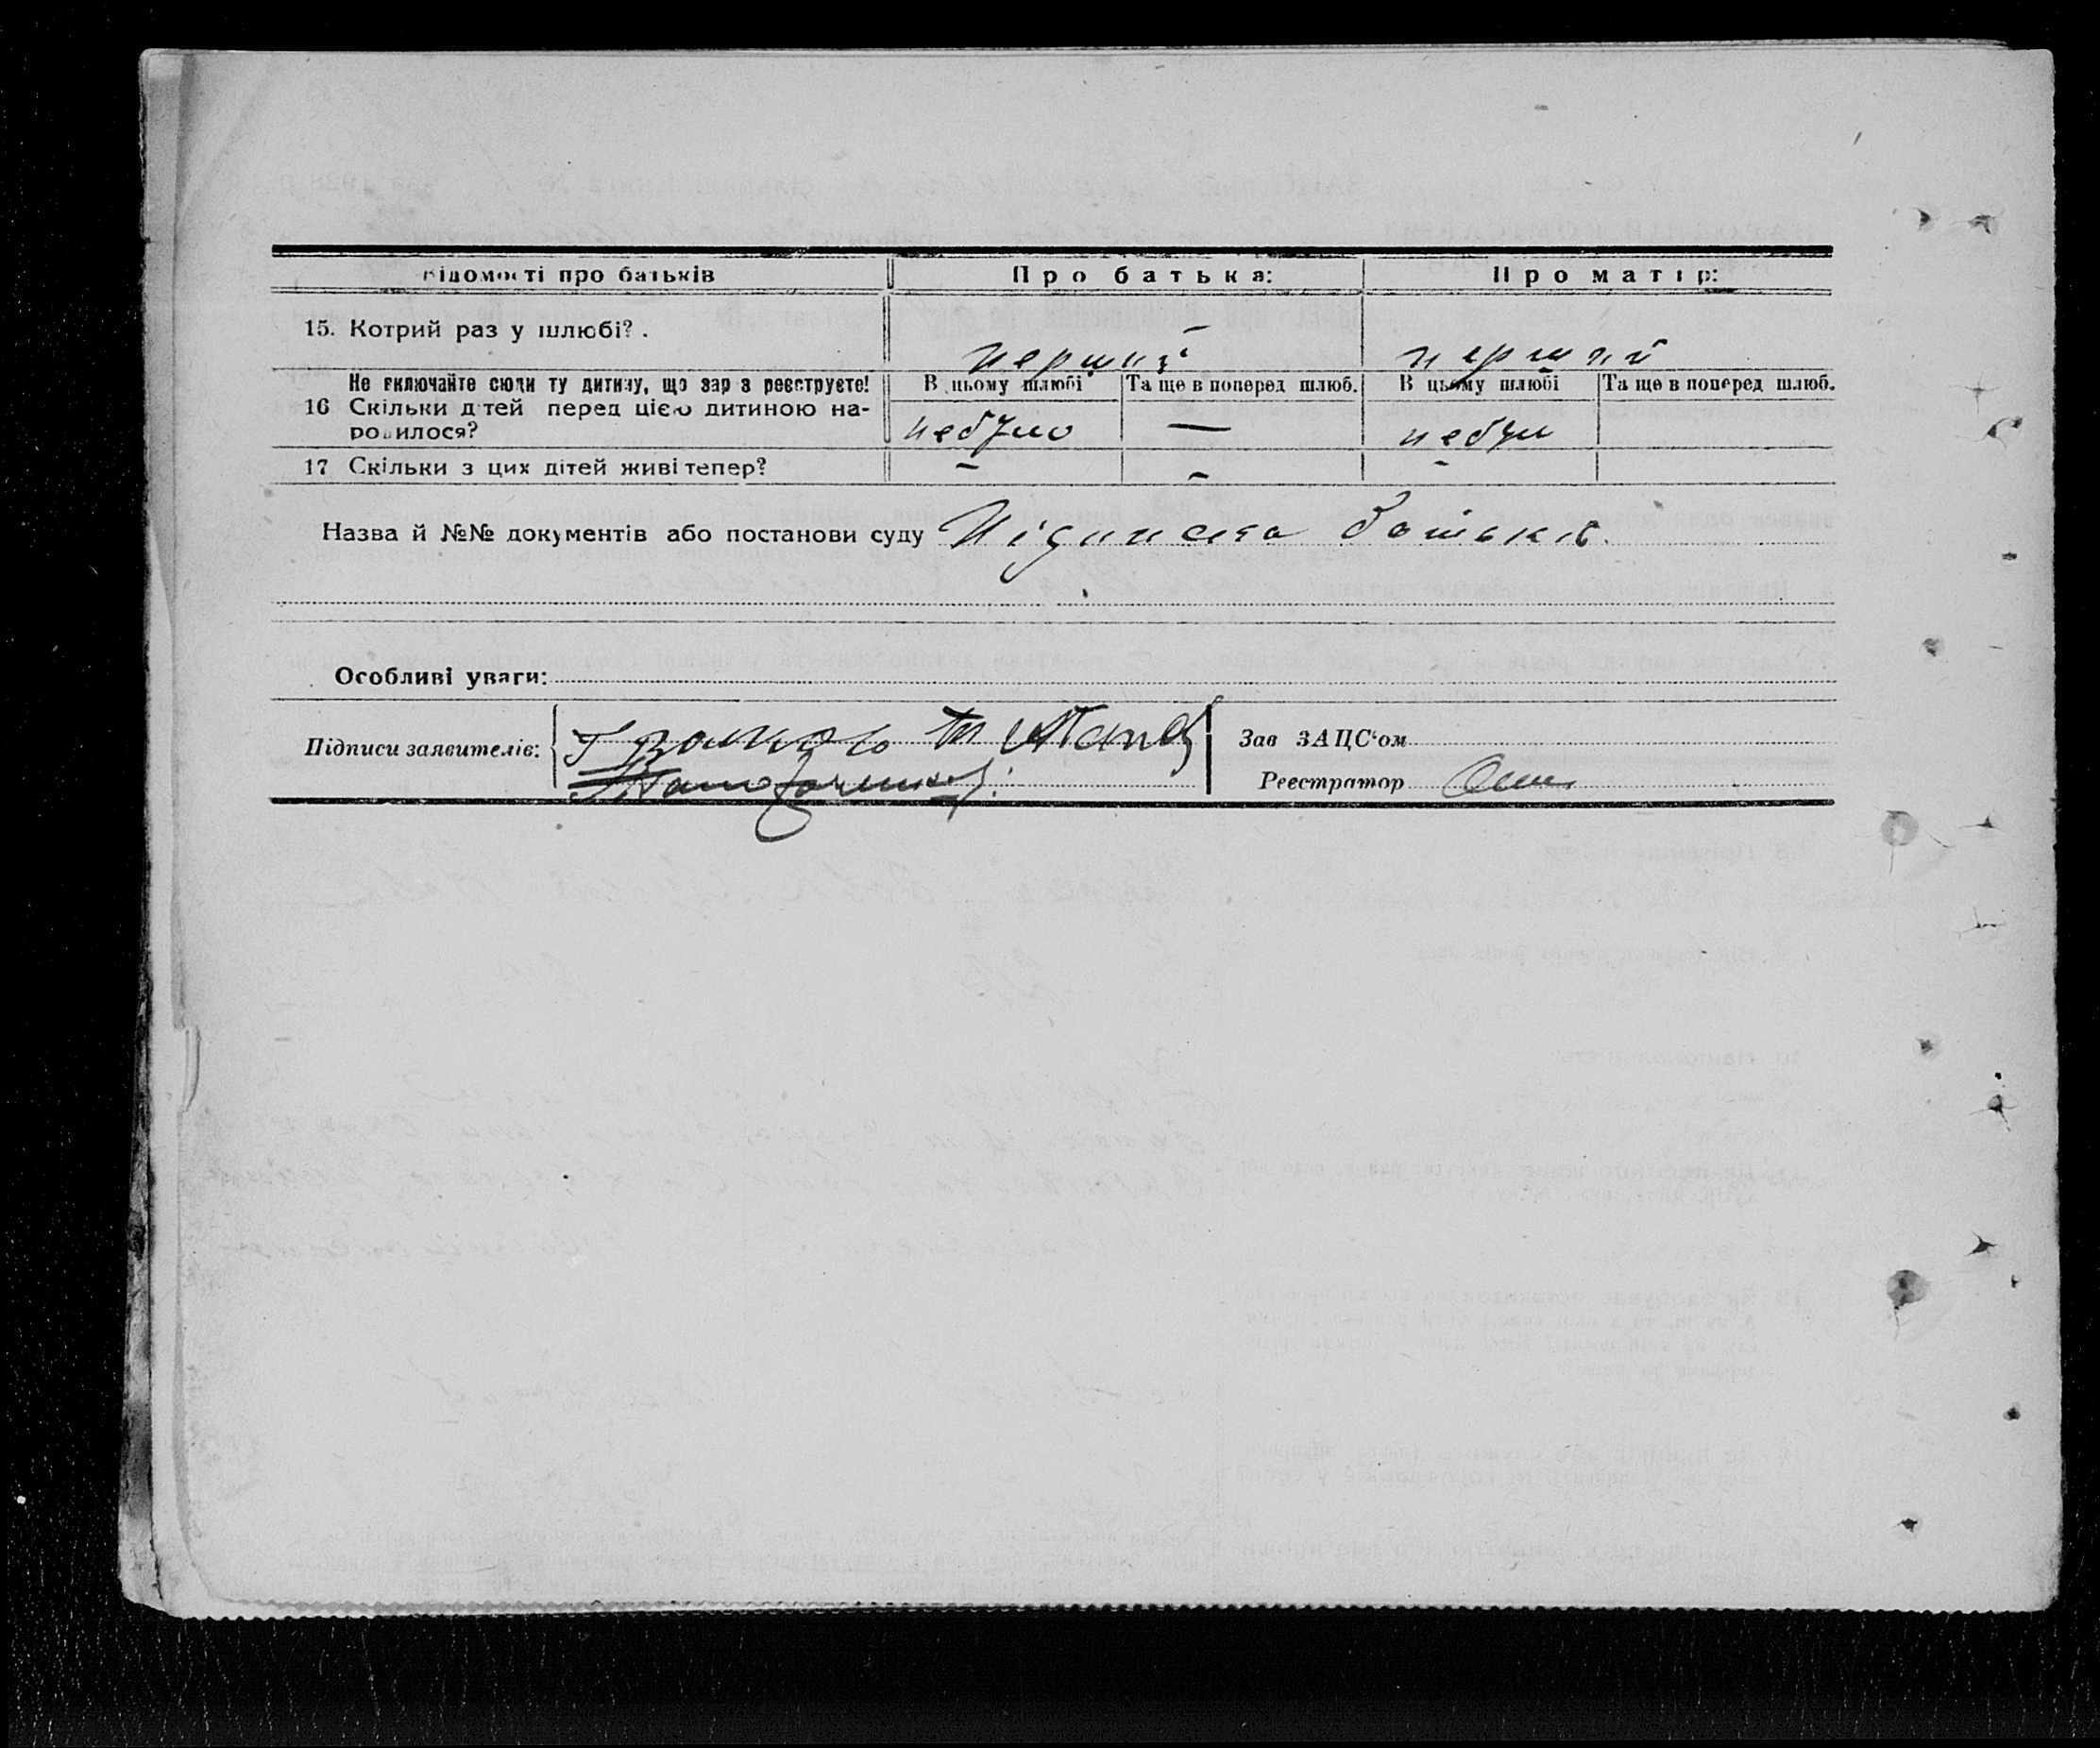 Відомості про батьків Про батька: Про матір:
15. Котрий раз у шлюбі? . перший перший
Не включайте сюди ту дитину, що зараз реєструєте! В цьому шлюбі Та ще в поперед шлюб. В цьому шлюбі Та ще в поперед шлюб.
16 Скільки дітей перед цією дитиною на-
родилося? небуло — небули
17 Скільки з цих дітей живі тепер? - - -
Назва й №№ документів або постанови суду Підписка батьків.
Особливі уваги:
Підписи заявителів:
Зав ЗАЦС'ом
Реєстратор